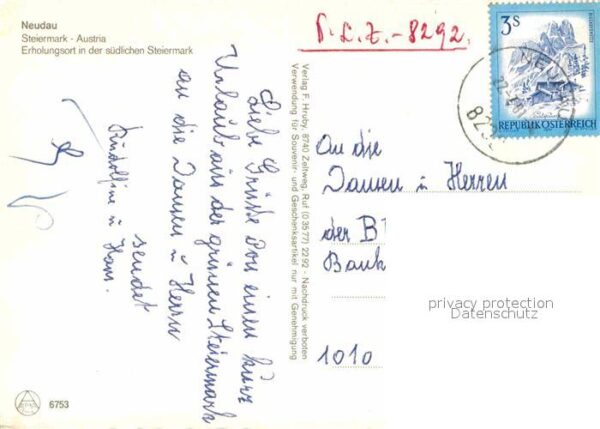 Neudau
Steiermark - Austria
Erholungsort in der südlichen Steiermark
P.L.Z.-8292.
3S
REPUBLIK ÖSTERREICH
NEUDAU
Verlag F. Hruby, 8740 Zeltweg, Ruf (0 35 77) 2292 - Nachdruck verboten
Verwendung für Souvenir- und Geschenkartikel nur mit Genehmigung
Liebe Grüße von einen kurz
Urlaub aus der grünen Steiermark
an die Damen u Herrn
sendet
Rudolfine u Hans.
An die
Damen u Herren
der B
Bank
1010
privacy protection
Datenschutz
6753